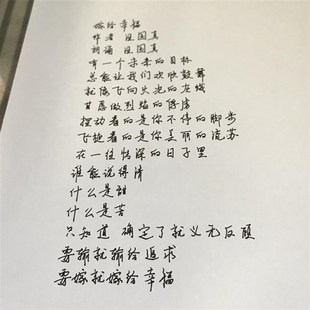 嫁给幸福
作者 汪国真
朗诵 汪国真
有一个未来的目标
总能让我们欢欣鼓舞
就像飞向火光的灰蛾
甘愿做烈焰的俘虏
摆动着的是你不停的脚步
飞旋着的是你美丽的流苏
在一往情深的日子里
谁能说得清
什么是甜
什么是苦
只知道 确定了就义无反顾
要输就输给追求
要嫁就嫁给幸福